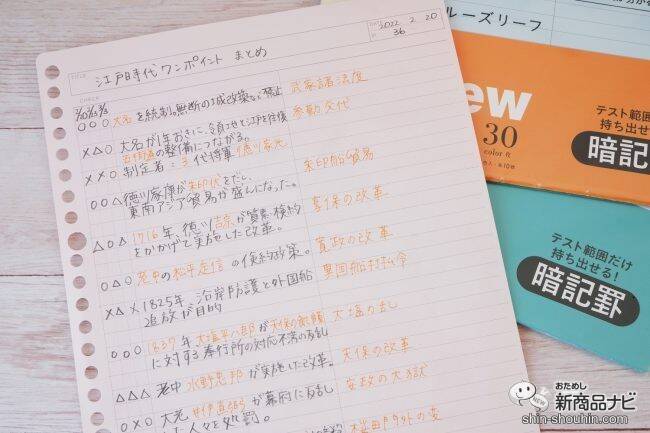 DATE 2022 2 20
TITLE 江戸時代ワンポイント まとめ
36
CHECK
○○○ 大名を統制。無断の城改築など禁止 武家諸法度
×△○ 大名が1年おきに、領地と江戸を往復 参勤交代
五街道の整備につながる。
××○ 制定者:3代将軍 徳川家光
○○△ 徳川家康が朱印状をだし、 朱印船貿易
東南アジア貿易が盛んになった。
△○△ 1716年、徳川吉宗が質素倹約 享保の改革
をかかげて実施した改革。
○△○ 老中の松平定信の倹約政策。 寛政の改革
×△× 1825年、沿岸防護と外国船 異国船打払令
追放が目的
○○○ 1837年 大塩平八郎が天保の飢饉 大塩の乱
に対する奉行所の対応不満の反乱
△△△ 老中 水野忠邦が実施した改革。 天保の改革
○×○ 大老 井伊直弼が幕府に反乱 安政の大獄
した人々を処罰。
桜田門外の変
ルーズリーフ
ew
30
color R
テスト範囲
持ち出せ
暗記
テスト範囲だけ
持ち出せる!
暗記罫
おためし
新商品ナビ
shin-shouhin.com